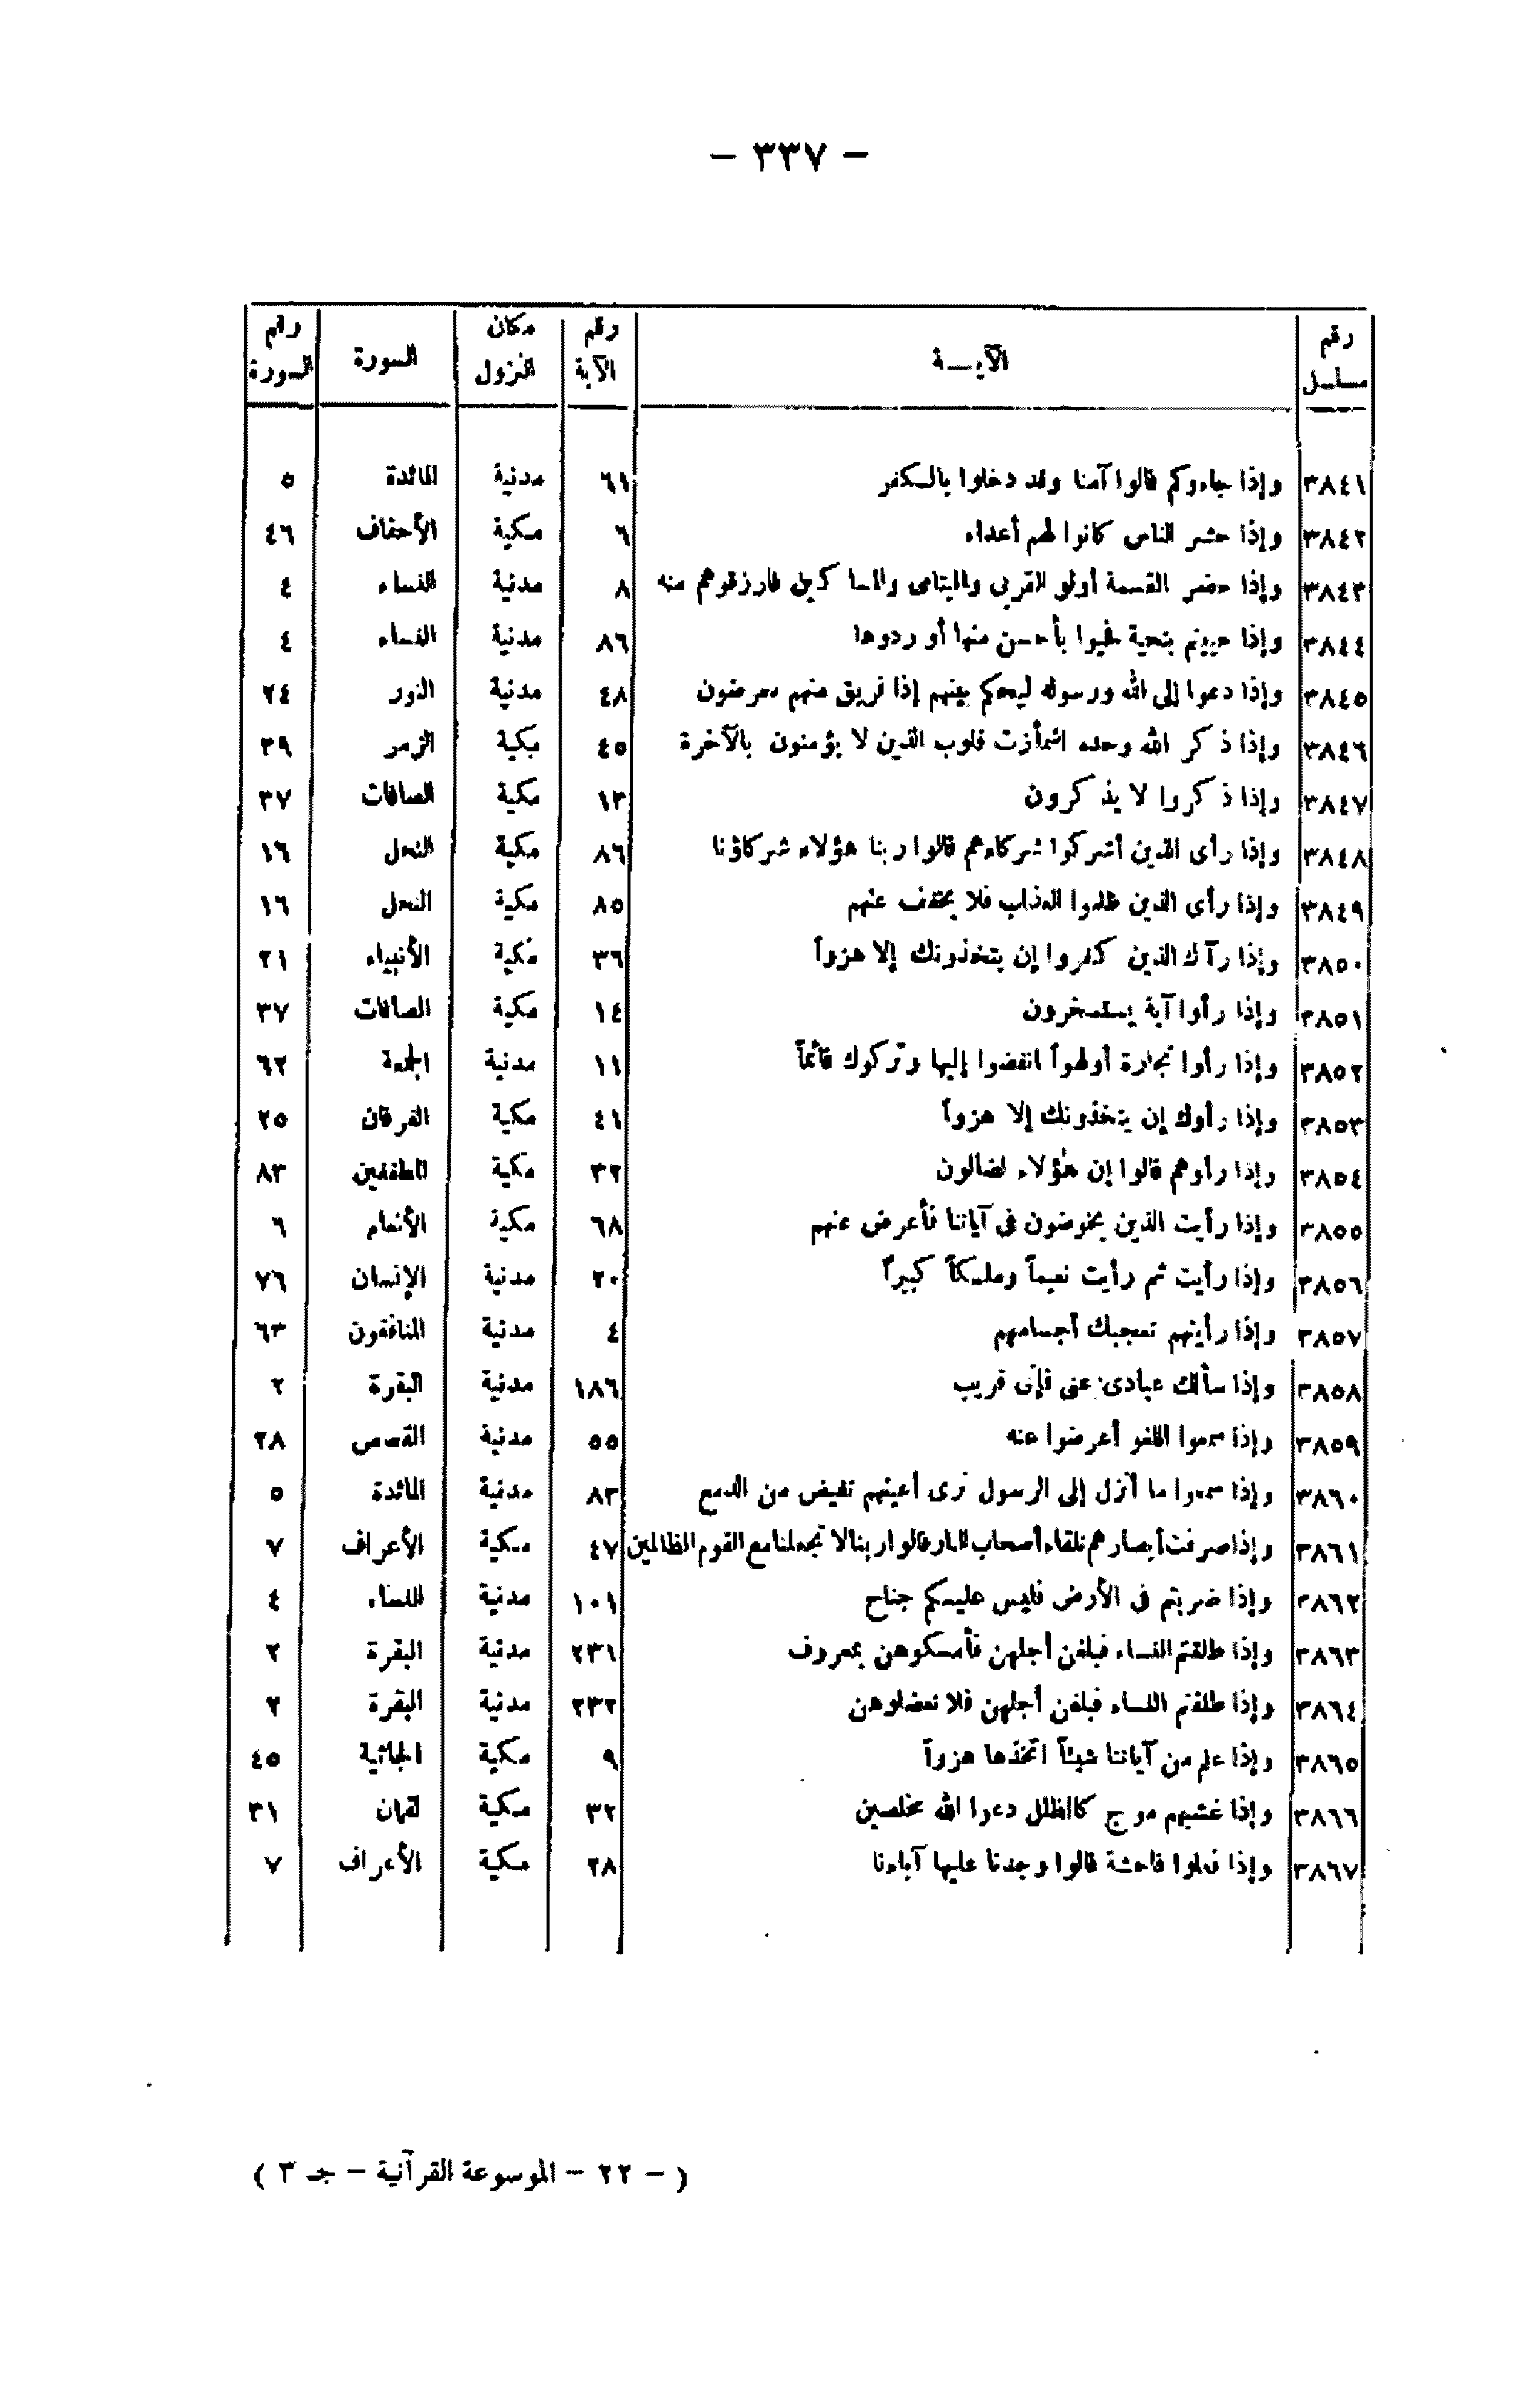 - ٣٣٧ -
رقم مسلسل الآيــة رقم الآية مكان النزول السورة رقم السورة
٣٨٤١ وإذا جاءوكم قالوا آمنا وقد دخلوا بالكفر ٦١ مدنية المائدة ٥
٣٨٤٢ وإذا حشر الناس كانوا لهم أعداء ٦ مكية الأحقاف ٤٦
٣٨٤٣ وإذا حضر القسمة أولو القربى واليتامى والمساكين فارزقوهم منه ٨ مدنية النساء ٤
٣٨٤٤ وإذا حييتم بتحية فحيوا بأحسن منها أو ردوها ٨٦ مدنية النساء ٤
٣٨٤٥ وإذا دعوا إلى الله ورسوله ليحكم بينهم إذا فريق منهم معرضون ٤٨ مدنية النور ٢٤
٣٨٤٦ وإذا ذكر الله وحده اشمأزت قلوب الذين لا يؤمنون بالآخرة ٤٥ مكية الزمر ٣٩
٣٨٤٧ وإذا ذكروا لا يذكرون ١٣ مكية الصافات ٣٧
٣٨٤٨ وإذا رأى الذين أشركوا شركاءهم قالوا ربنا هؤلاء شركاؤنا ٨٦ مكية النحل ١٦
٣٨٤٩ وإذا رأى الذين ظلموا العذاب فلا يخفف عنهم ٨٥ مكية النحل ١٦
٣٨٥٠ وإذا رآك الذين كفروا إن يتخذونك إلا هزواً ٣٦ مكية الأنبياء ٢١
٣٨٥١ وإذا رأوا آية يستسخرون ١٤ مكية الصافات ٣٧
٣٨٥٢ وإذا رأوا تجارة أو لهواً انفضوا إليها وتركوك قائماً ١١ مدنية الجمعة ٦٢
٣٨٥٣ وإذا رأوك إن يتخذونك إلا هزواً ٤١ مكية الفرقان ٢٥
٣٨٥٤ وإذا رأوهم قالوا إن هؤلاء لضالون ٣٢ مكية المطففين ٨٣
٣٨٥٥ وإذا رأيت الذين يخوضون فى آياتنا فأعرض عنهم ٦٨ مكية الأنعام ٦
٣٨٥٦ وإذا رأيت ثم رأيت نعيماً وملكاً كبيراً ٢٠ مدنية الإنسان ٧٦
٣٨٥٧ وإذا رأيتهم تعجبك أجسامهم ٤ مدنية المنافقون ٦٣
٣٨٥٨ وإذا سألك عبادى عنى فإنى قريب ١٨٦ مدنية البقرة ٢
٣٨٥٩ وإذا سمعوا اللغو أعرضوا عنه ٥٥ مدنية القصص ٢٨
٣٨٦٠ وإذا سمعوا ما أنزل إلى الرسول ترى أعينهم تفيض من الدمع ٨٣ مدنية المائدة ٥
٣٨٦١ وإذا صرفت أبصارهم تلقاء أصحاب النار قالوا ربنا لا تجعلنا مع القوم الظالمين ٤٧ مكية الأعراف ٧
٣٨٦٢ وإذا ضربتم فى الأرض فليس عليكم جناح ١٠١ مدنية النساء ٤
٣٨٦٣ وإذا طلقتم النساء فبلغن أجلهن فأمسكوهن بمعروف ٢٣١ مدنية البقرة ٢
٣٨٦٤ وإذا طلقتم النساء فبلغن أجلهن فلا تعضلوهن ٢٣٢ مدنية البقرة ٢
٣٨٦٥ وإذا علم من آياتنا شيئاً اتخذها هزواً ٩ مكية الجاثية ٤٥
٣٨٦٦ وإذا غشيهم موج كالظلل دعوا الله مخلصين ٣٢ مكية لقمان ٣١
٣٨٦٧ وإذا فعلوا فاحشة قالوا وجدنا عليها آباءنا ٢٨ مكية الأعراف ٧
( - ٢٢ - الموسوعة القرآنية - جـ ٣ )